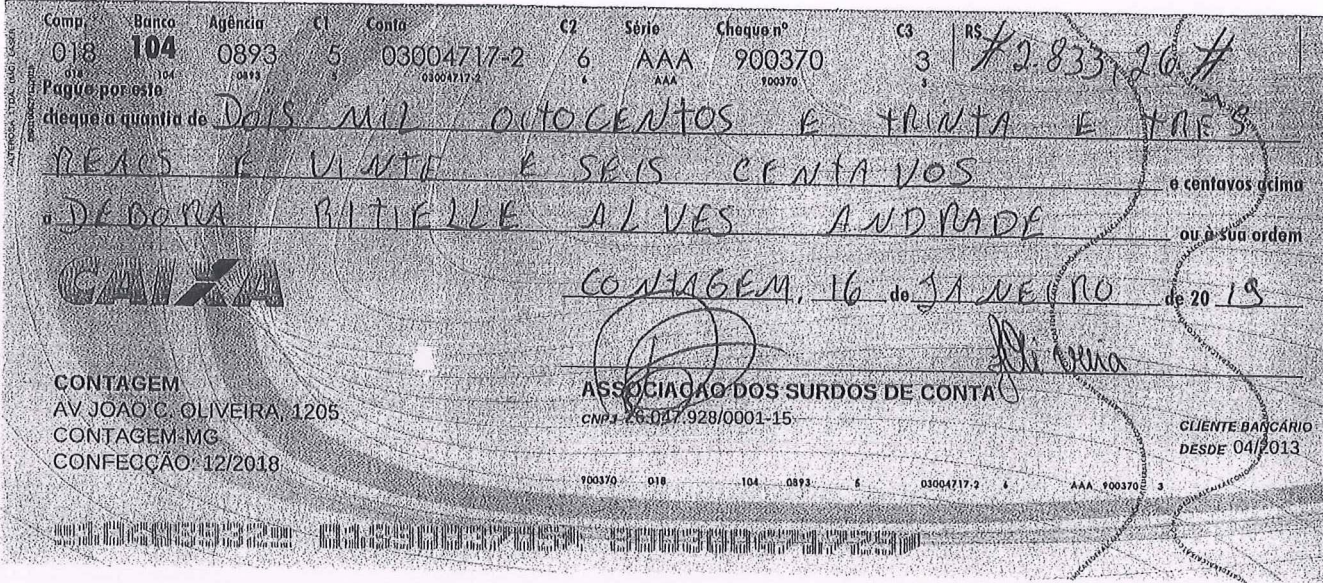 Comp. Banco Agência C1 Conta C2 Série Cheque nº C3 R$
018 104 0893 5 03004717-2 6 AAA 900370 3 # 2.833,26 #
018 104 0893 5 03004717-2 6 AAA 900370 3
Pague por este
cheque a quantia de DOIS MIL OITOCENTOS E TRINTA E TRES
REAIS E VINTE E SEIS CENTAVOS e centavos acima
a DEBORA RITIELLE ALVES ANDRADE ou à sua ordem
CAIXA
CONTAGEM, 16 de JANEIRO de 20 19
CONTAGEM
AV JOAO C. OLIVEIRA, 1205
CONTAGEM-MG
CONFECÇÃO: 12/2018
Oliveira
ASSOCIACAO DOS SURDOS DE CONTA
CNPJ 26.047.928/0001-15
CLIENTE BANCÁRIO
DESDE 04/2013
900370 018 104 0893 5 03004717-2 6 AAA 900370 3